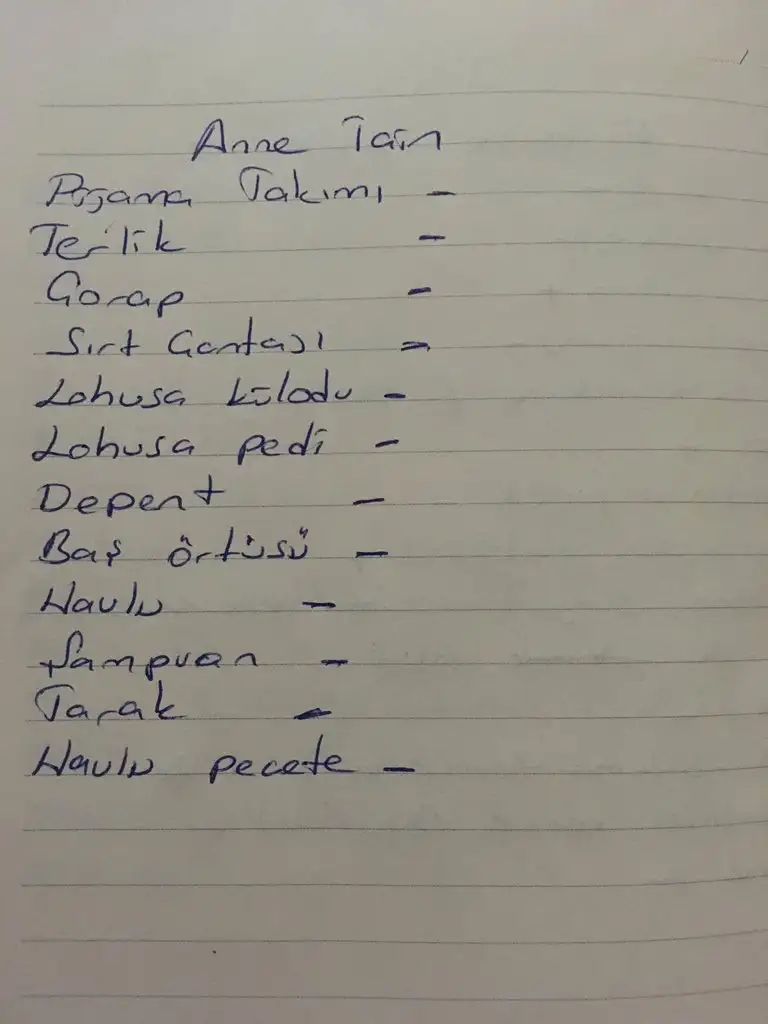 Anne İçin
Pijama Takımı -
Terlik -
Çorap -
Sırt Çantası -
Lohusa külodu -
Lohusa pedi -
Depent -
Baş örtüsü -
Havlu -
Şampuan -
Tarak -
Havlu peçete -